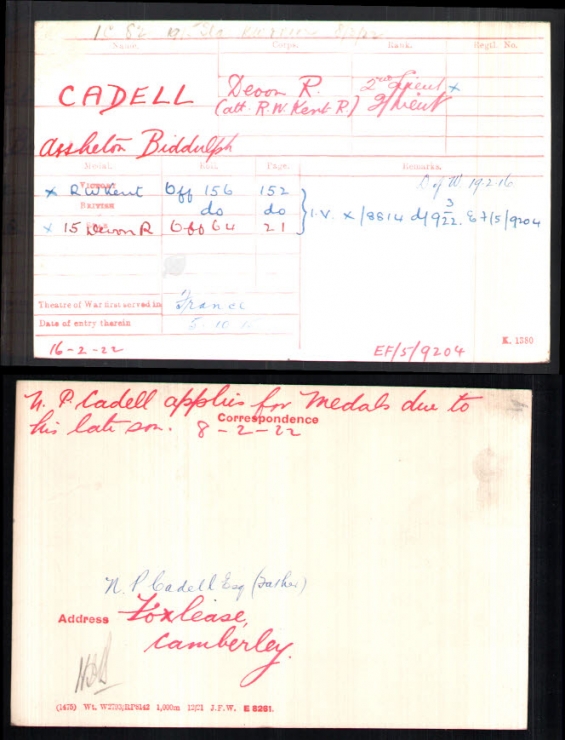 Name. Corps. Rank. Regtl. No.
CADELL Devon R. 2nd Lieut x
(att. R.W. Kent R.) 2/Lieut
Assheton Biddulph
Medal. Roll. Page. Remarks.
Victory D of W. 19.2.16
x R W Kent Off 156 152
British do do } I.V. x/8814 d/9 3/22. E F/5/9204
x 15 Devon R Off 64 21
Theatre of War first served in France
Date of entry therein 5.10.
16-2-22 EF/5/9204 K. 1380
N. P. Cadell applies for Medals due to
his late son. 8-2-22
Correspondence
N. P. Cadell Esq (Father)
Address Foxlease,
Camberley.
1,000m 12/21 J.F.W. E 8261.